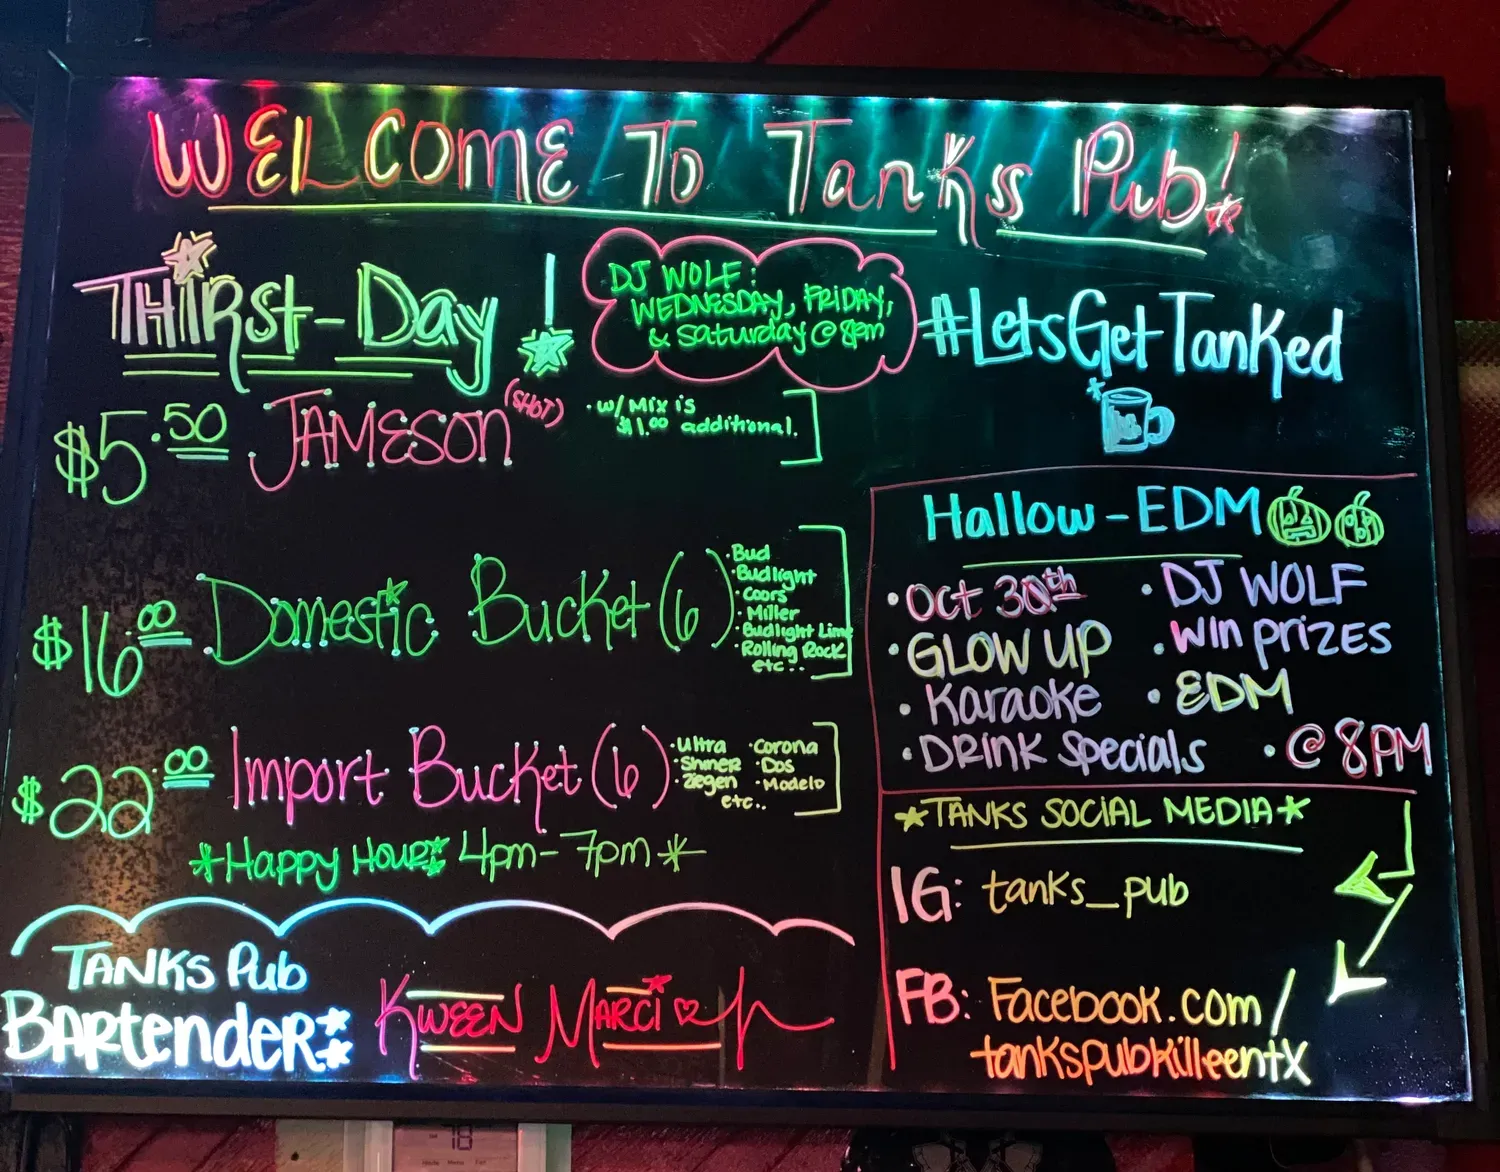 WELCOME TO Tanks Pub!
THIRSt-Day!
DJ WOLF:
WEDNESDAY, FRIDAY,
& Saturday @ 8pm
#LetsGetTanKed
$5.50 JAMESON (SHOT)
• w/ Mix is
$1.00 additional.
$16.00 Domestic Bucket (6)
• Bud
• Budlight
• Coors
• Miller
• Budlight Lime
• Rolling Rock
etc...
$22.00 Import Bucket (6)
• Ultra • Corona
• Shiner • Dos
• Ziegen • Modelo
etc..
*Happy HOUR* 4pm-7pm*
TANKS Pub
BARtendeR:
KWEEN MARCI
Hallow-EDM
• Oct 30th • DJ WOLF
• GLOW UP • WIN PRIZES
• Karaoke • EDM
• DRINK Specials • @ 8PM
*TANKS SOCIAL MEDIA*
IG: tanks_pub
FB: Facebook.com/
tankspubkilleentx
78